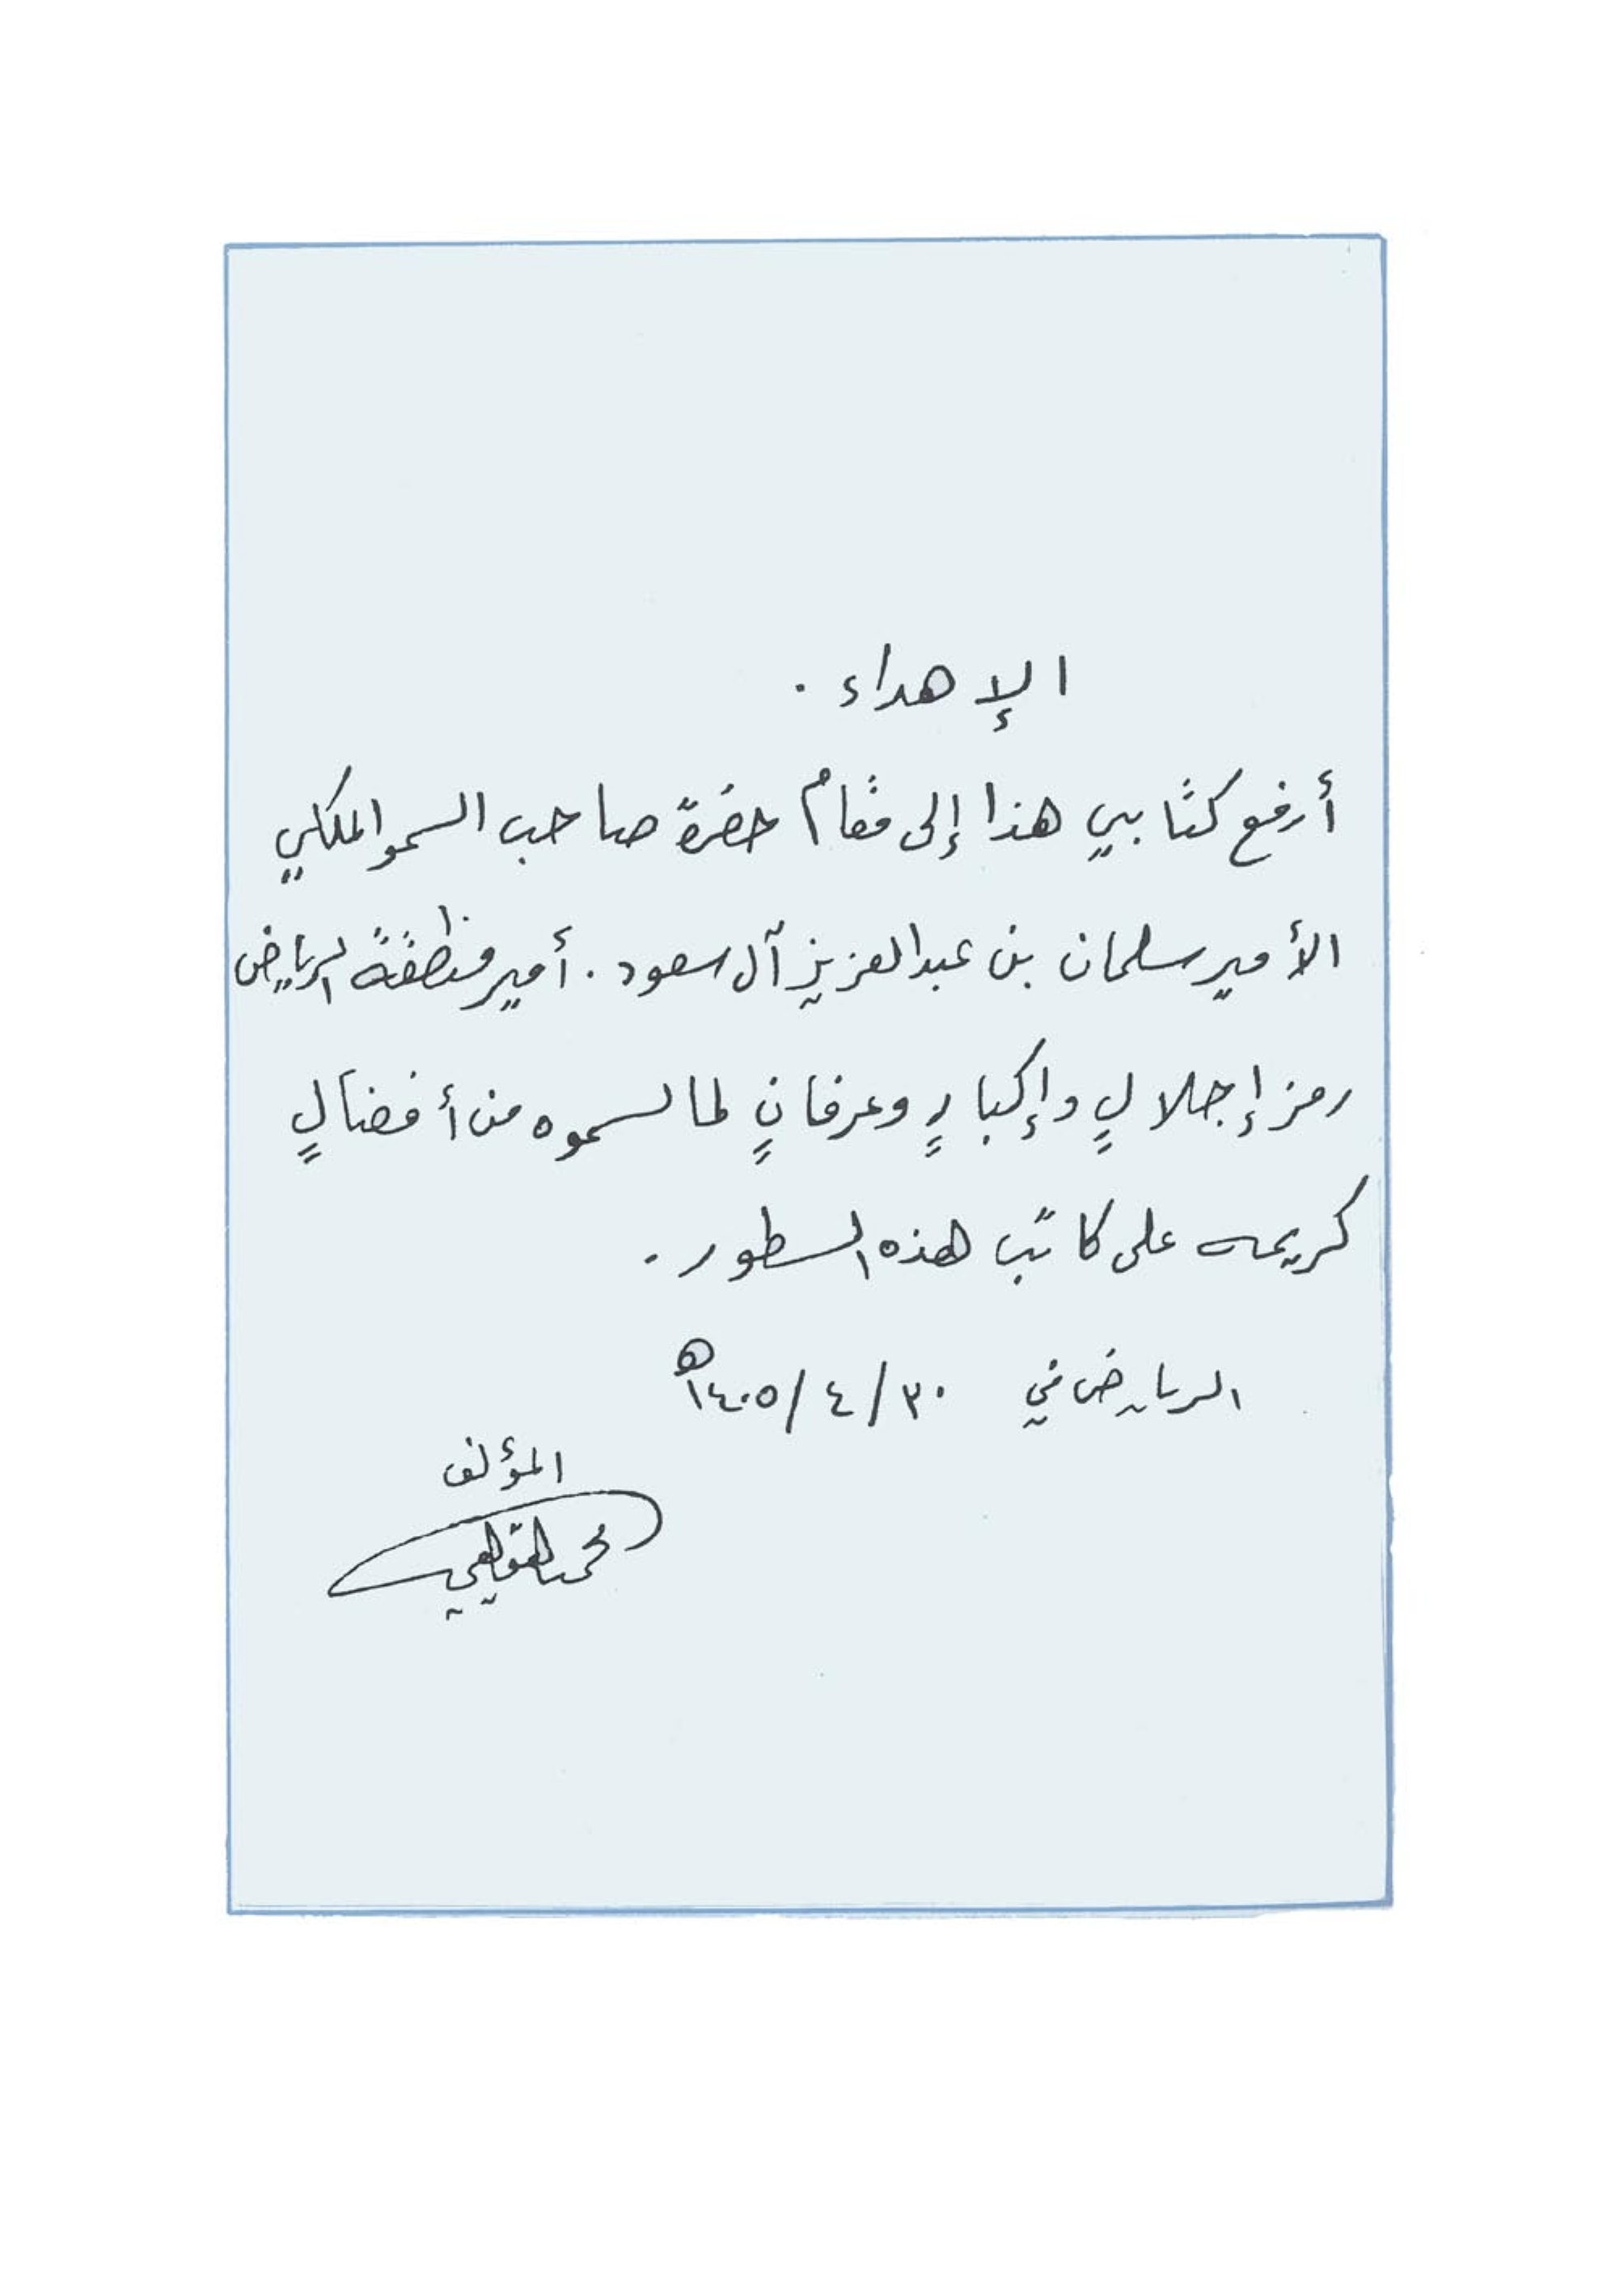 الإهداء .
أرفع كتابي هذا إلى مقام حضرة صاحب السمو الملكي
الأمير سلمان بن عبدالعزيز آل سعود . أمير منطقة الرياض
رمز إجلالٍ وإكبارٍ وعرفانٍ لما لسموه من أفضالٍ
كريمه على كاتب هذه السطور .
الرياض في ٣٠/٤/١٤٠٥ه
المؤلف
محمد